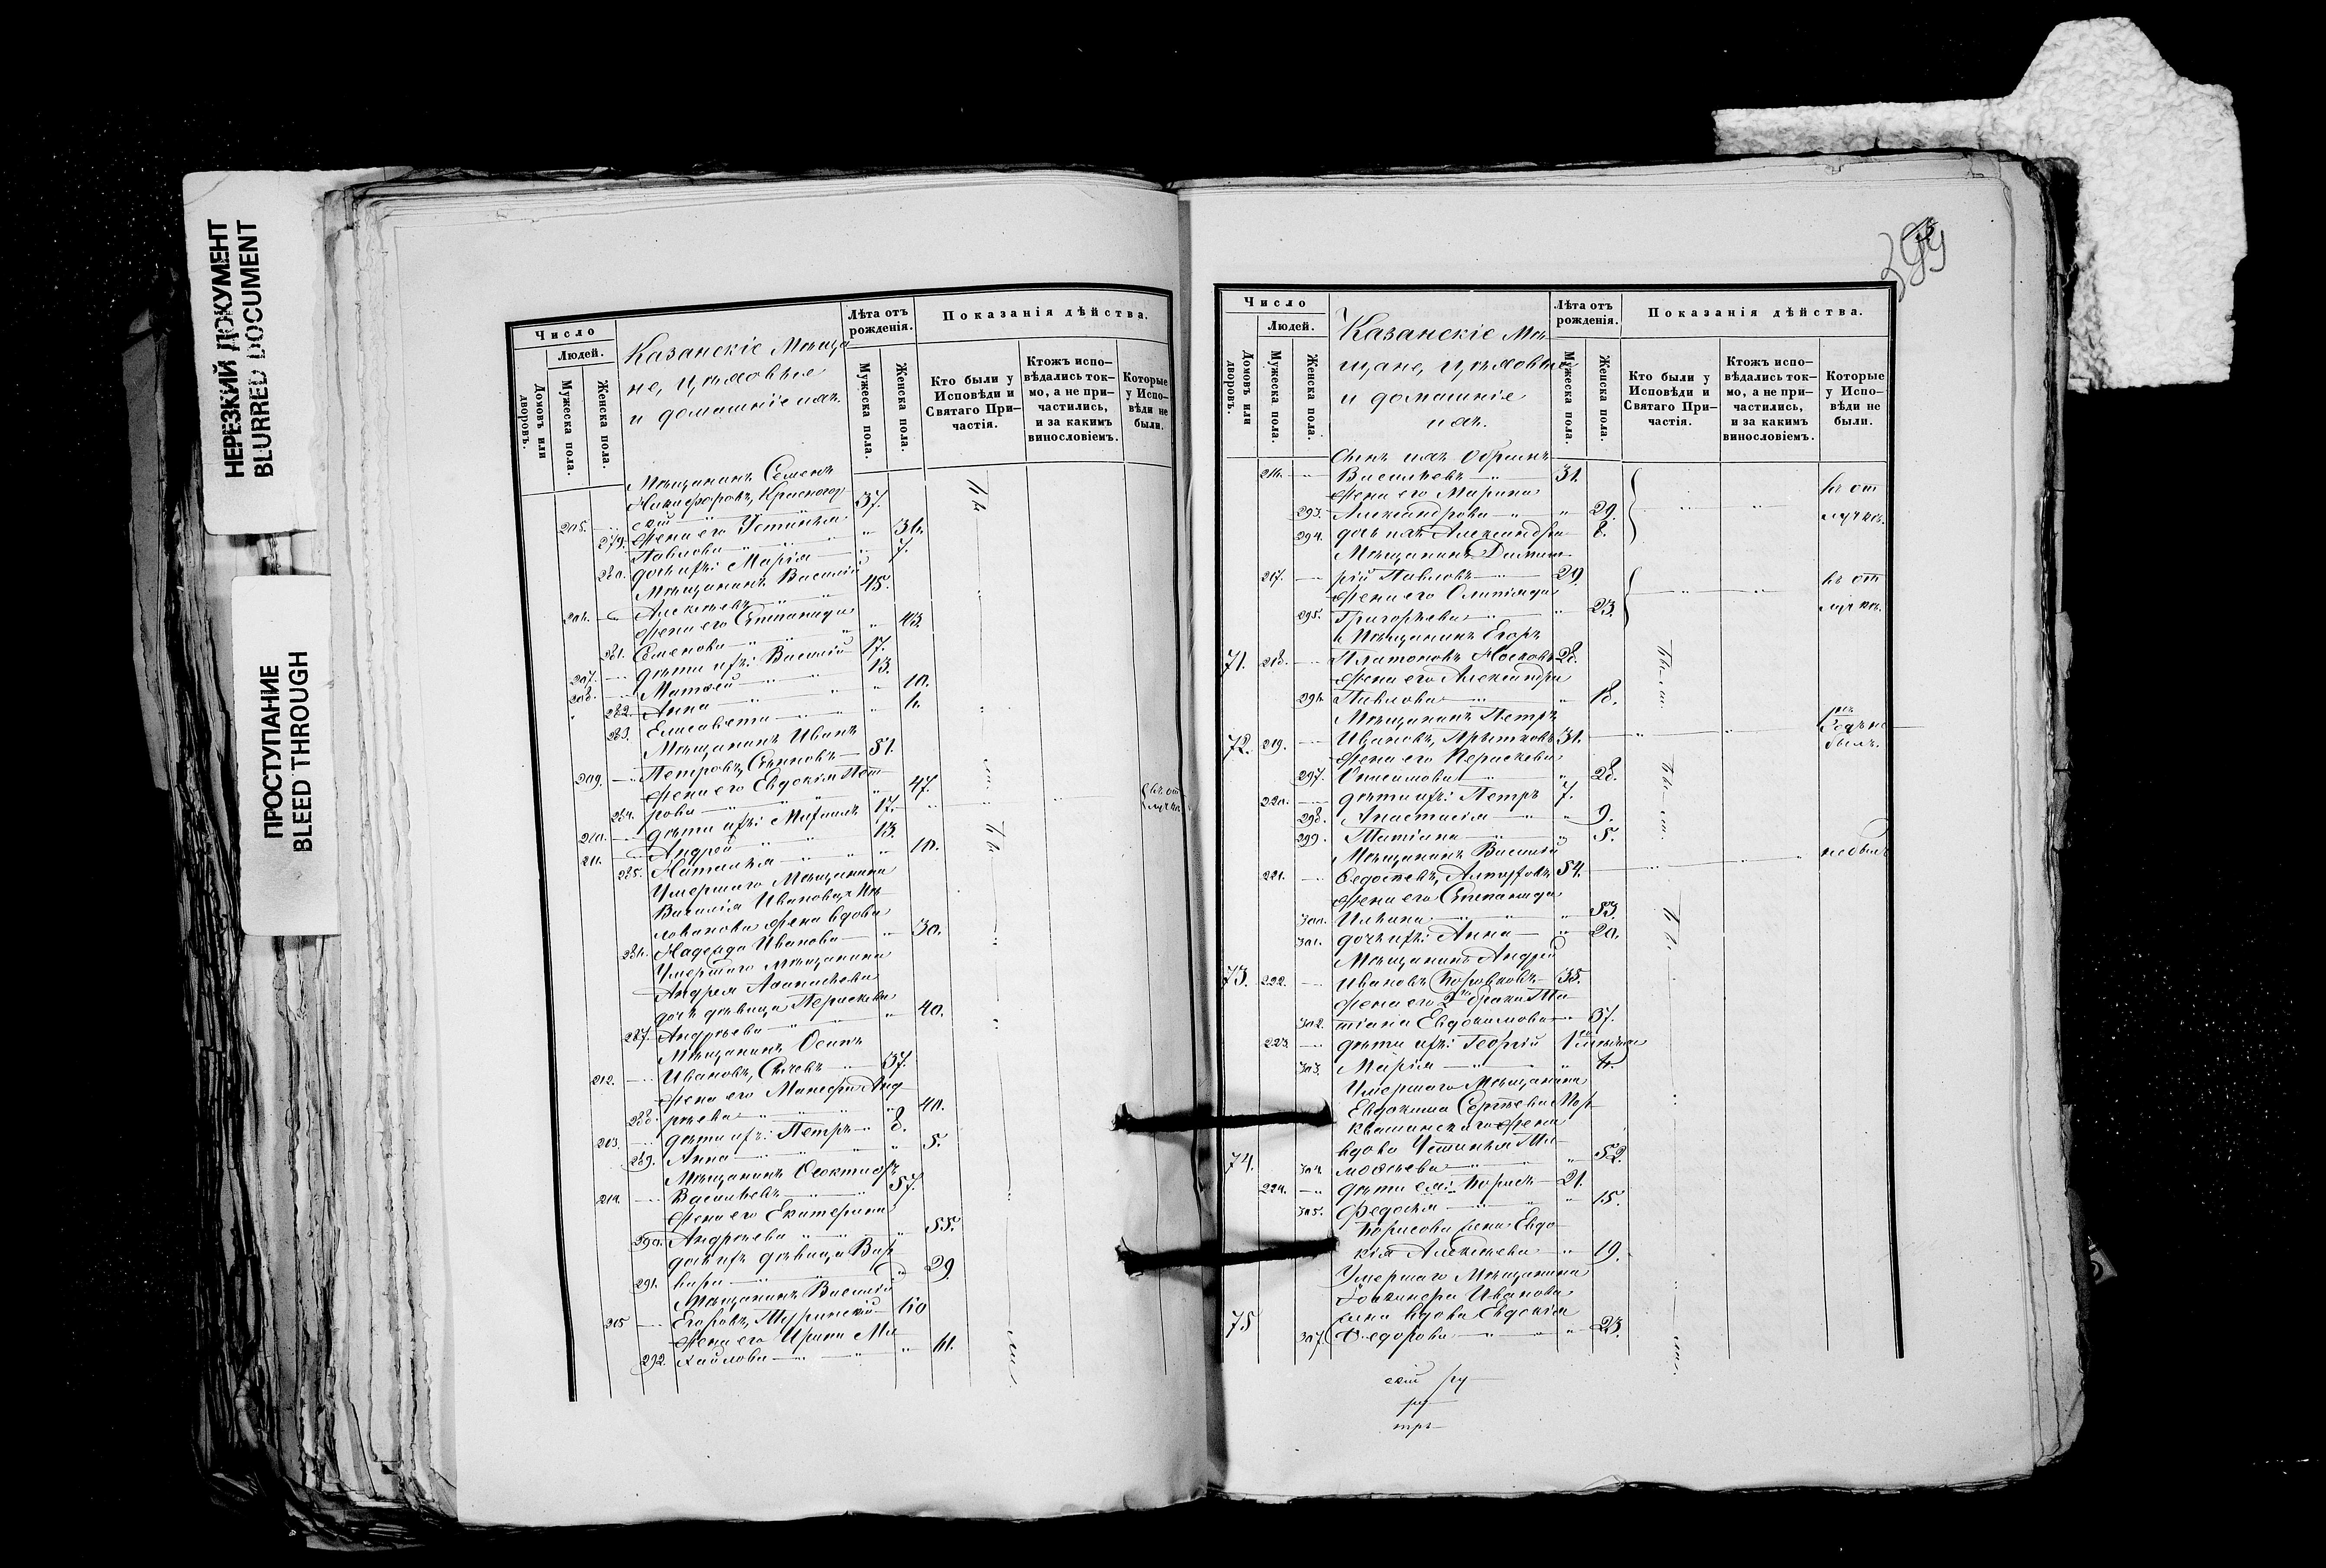 НЕРЕЗКИЙ ДОКУМЕНТ
BLURRED DOCUMENT
ПРОСТУПАНИЕ
BLEED THROUGH
Число
Людей.
Домовъ или дворовъ.
Мужеска пола.
Женска пола.
Казанскіе Мѣща
не, цѣховые
и домашніе ихъ.
Лѣта отъ рожденія.
Мужеска пола.
Женска пола.
Показанія дѣйства.
Кто были у Исповѣди и Святаго При-частія.
Ктожъ испо-вѣдались ток-мо, а не при-частились, и за какимъ винословіемъ.
Которые у Испо-вѣди не были.
Мѣщанинъ Семенъ
Никифоровъ,
205. 37.
жена его Устинья
279. Павлова 36.
280. дочь ихъ: Марія 7.
Мѣщанинъ Василій
206. Алексѣевъ 45.
жена его Степанида
281. Семенова 43.
207. дѣти ихъ: Василій 17.
208. Матвей 13.
282. Анна 10.
283. Елисавета 6.
Мѣщанинъ Иванъ
209. Петровъ, 51.
жена его Евдокія Пет
284. рова 47.
210. дѣти ихъ: Михаилъ 17.
211. Андрей 13.
285. Наталья 10.
Умершаго Мѣщанина
Василія Иванова
жена вдова
286. Надежда Иванова 30.
Умершаго Мѣщанина
Андрея
дочь дѣвица Параскева
287. Андреева 40.
Мѣщанинъ Осипъ
212. Ивановъ, 37.
жена его Андр
288. реева 40.
213. дѣти ихъ: Петръ 8.
289. Анна 5.
Мѣщанинъ
214. Васильевъ 57.
жена его Екатерина
290. Андреева 55.
дочь ихъ дѣвица Вар
291. вара 29.
Мѣщанинъ Василій
215 Егоровъ, 60
жена его Ирина Ми
292. хайлова 61.
въ от
лучкѣ
399
Число
Людей.
Домовъ или дворовъ.
Мужеска пола.
Женска пола.
Казанскіе Мѣ
щане, цѣховые
и домашніе
ихъ.
Лѣта отъ рожденія.
Мужеска пола.
Женска пола.
Показанія дѣйства.
Кто были у Исповѣди и Святаго При-частія.
Ктожъ испо-вѣдались ток-мо, а не при-частились, и за какимъ винословіемъ.
Которые у Испо-вѣди не были.
сынъ ихъ
216. Васильевъ 31.
жена его Марина
293. Александрова 29.
294. дочь ихъ Александра 8.
въ от
лучкѣ.
Мѣщанинъ Димит
217. рій Павловъ 29.
жена его Олимпіада
295. Григорьева 23.
въ от
лучкѣ.
Мѣщанинъ Егоръ
71. 218. Платоновъ Носковъ 28.
жена его Александра
296. Павлова 18.
Были.
Мѣщанинъ Петръ
72. 219. Ивановъ, 31.
не
былъ.
жена его Параскева
297. Онисимова 28.
220. дѣти ихъ: Петръ 7.
298. Анастасія 9.
299. Татіана 5.
Были.
Мѣщанинъ Василій
221. Федотовъ, 54.
не былъ
жена его Степанида
300. Ильина 53.
301. дочь ихъ: Анна 20.
Мѣщанинъ Андрей
73. 222. Ивановъ Боровковъ 35.
жена его 2го брака Та
302. тіана Евдокимова 37.
223. дѣти ихъ: Георгій 1
303. Марія 6.
Умершаго Мѣщанина
Евдокима Сергѣева
жена
вдова Устинья Ти
74. 304. мофеева 52.
224. дѣти ея: Борисъ 21.
305. Федосья 15.
Борисова жена Евдо
кія Алексѣева 19.
Умершаго Мѣщанина
Иванова
жена вдова Евдокія
75 307. Федорова 23.